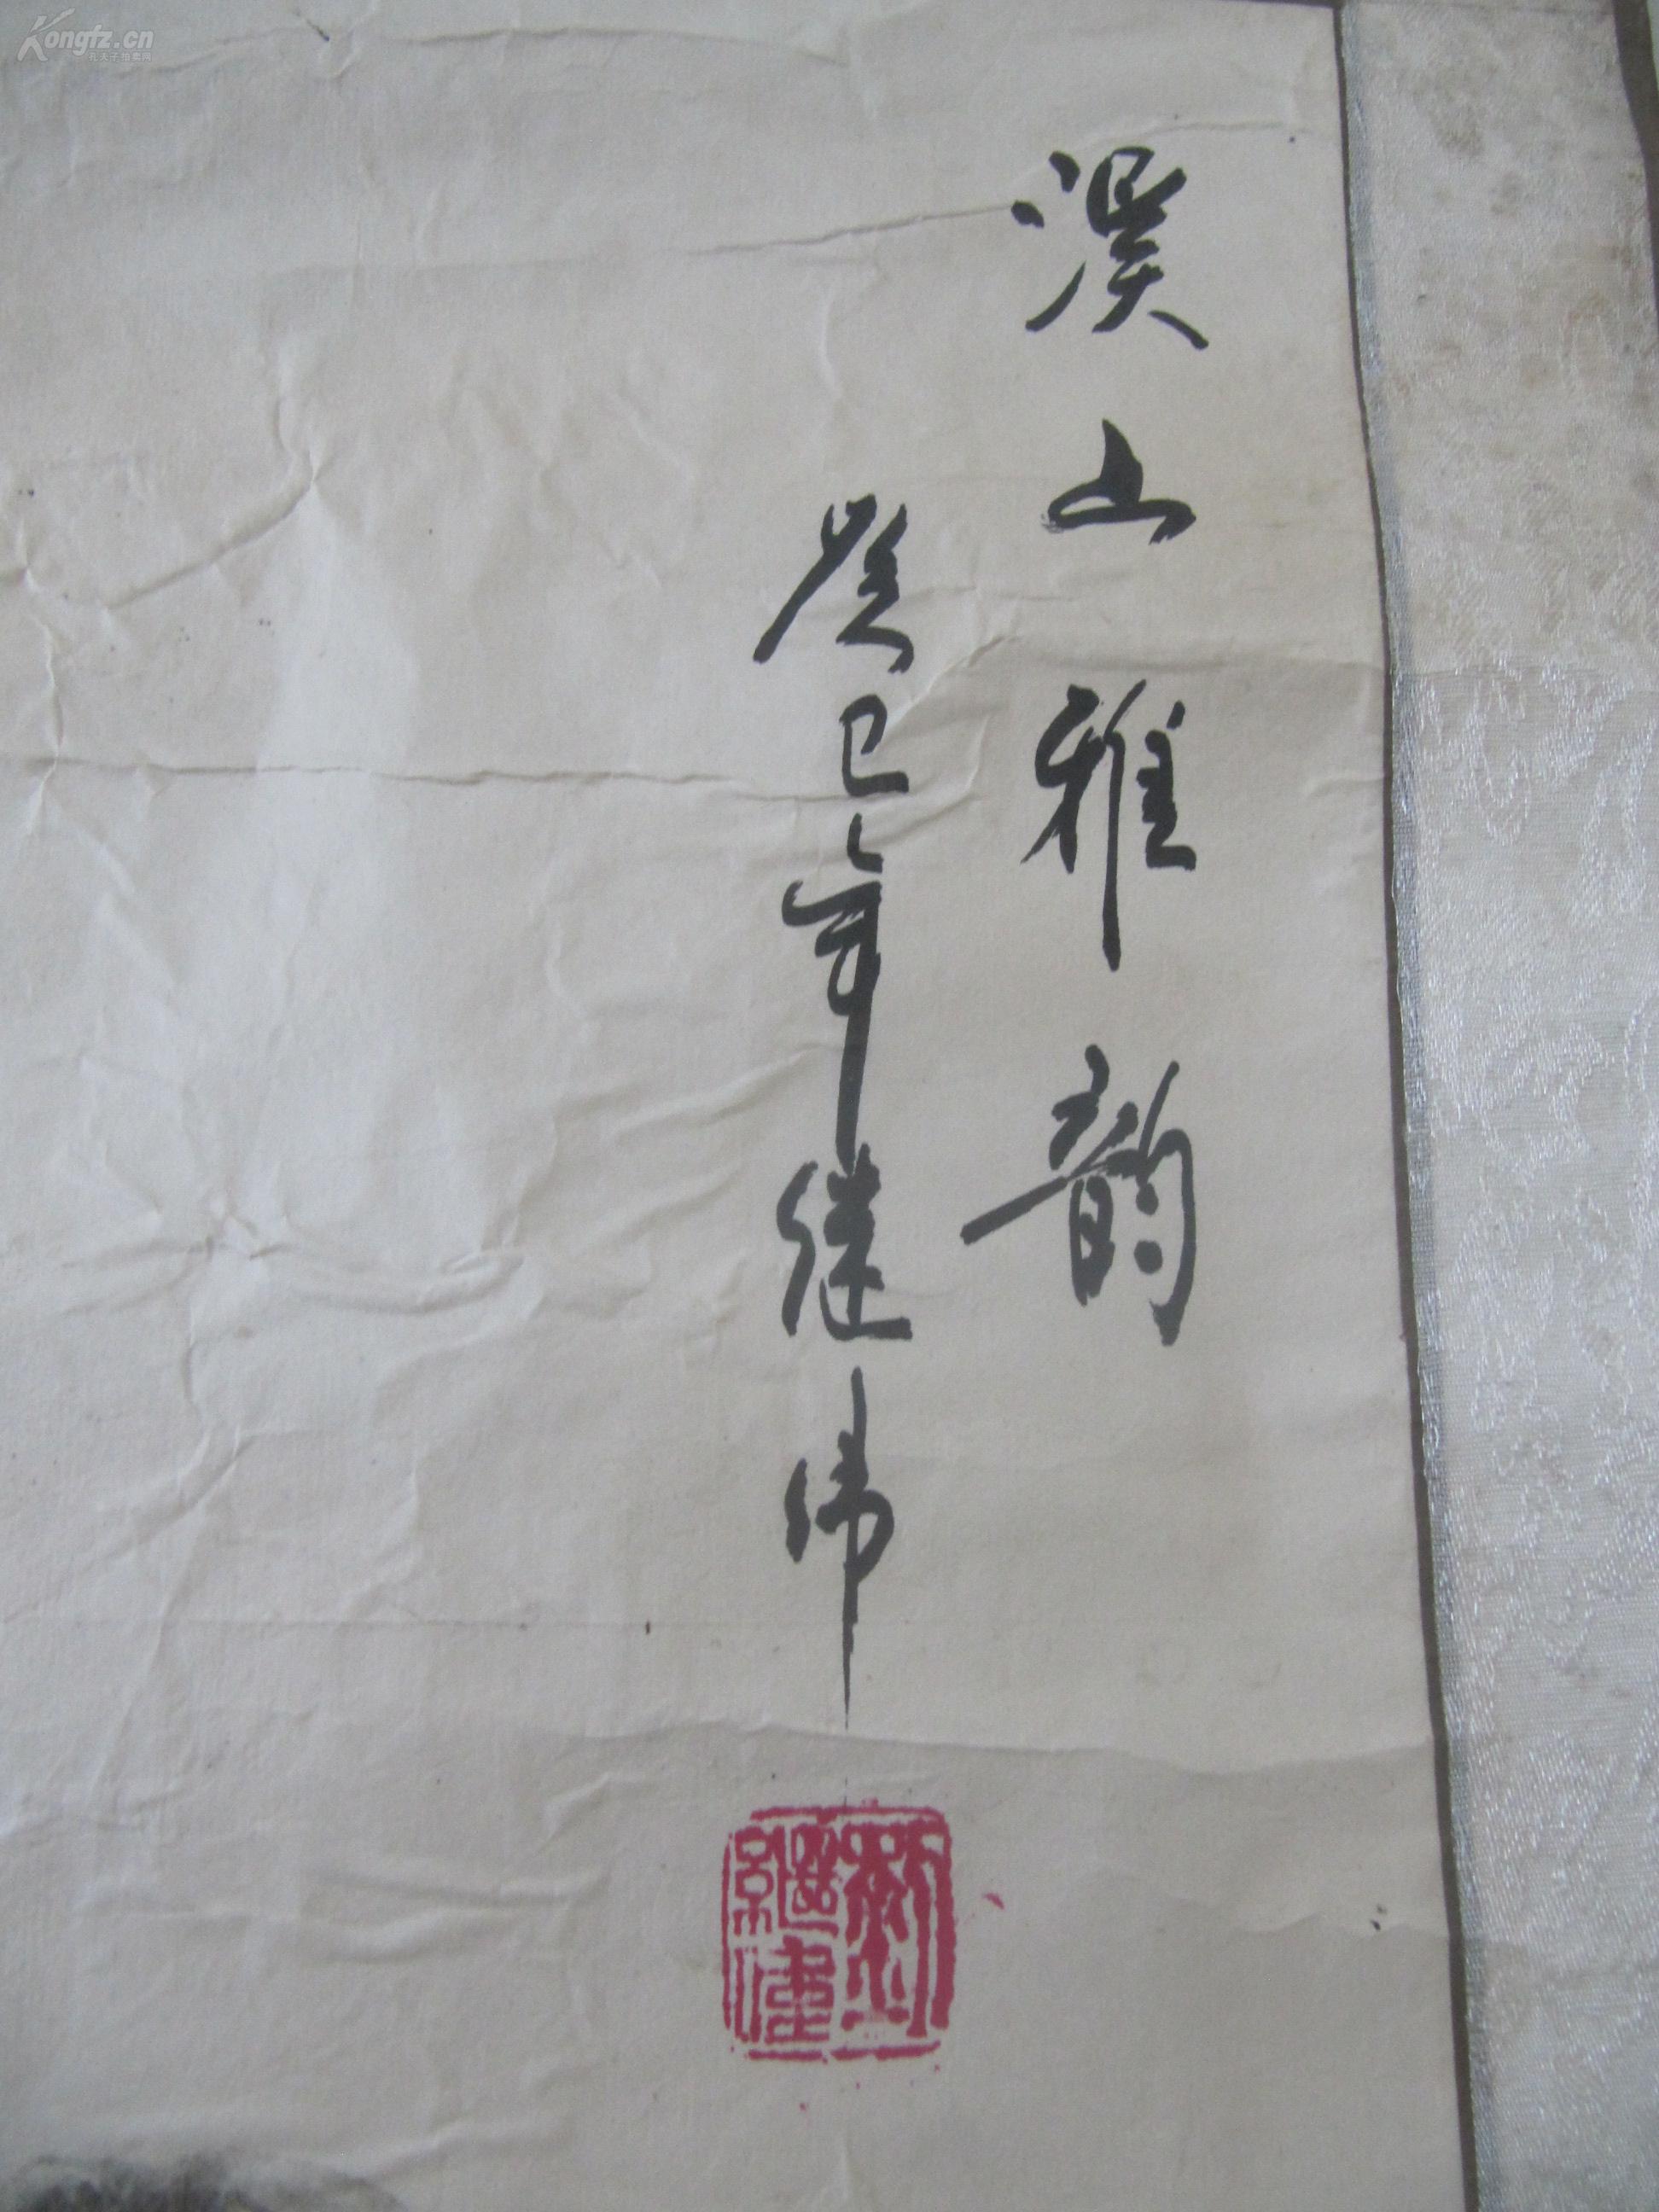 溪山雅韵
癸巳年继伟
刘继伟
Kongfz.cn
孔夫子拍卖网